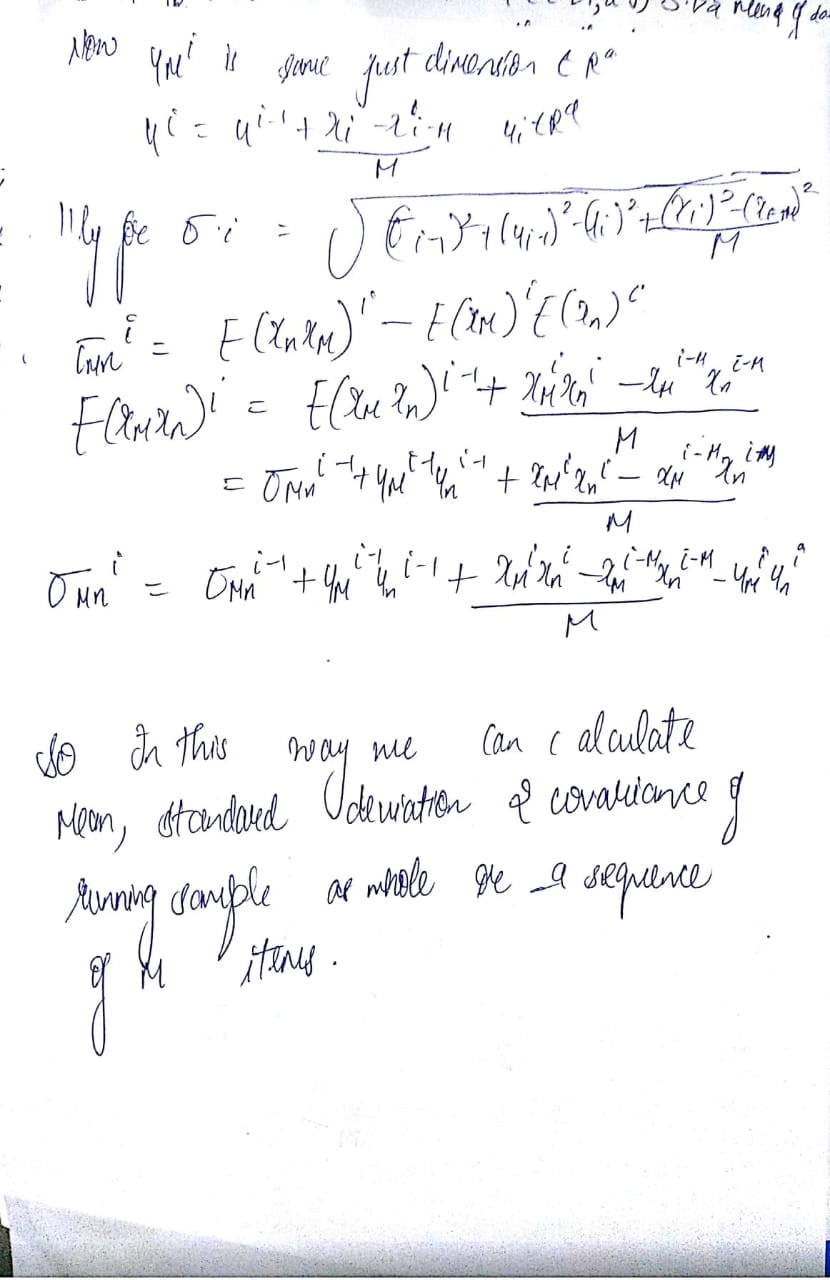 Now μ_M^i is same just dimension ∈ R^a
μ^i = μ^{i-1} + (x_i - x_{i-M})/M μ_i ∈ R^q
lllly for σ_i = √((σ_{i-1})² + (μ_{i-1})² - (μ_i)² + ((x_i)² - (x_{i-M})²)/M)
σ_{Mn}^i = E(x_n x_M)^i - E(x_M)^i E(x_n)^i
E(x_M x_n)^i = E(x_M x_n)^{i-1} + (x_M^i x_n^i - x_M^{i-M} x_n^{i-M})/M
= σ_{Mn}^{i-1} + μ_M^{i-1} μ_n^{i-1} + (x_M^i x_n^i - x_M^{i-M} x_n^{i-M})/M
σ_{Mn}^i = σ_{Mn}^{i-1} + μ_M^{i-1} μ_n^{i-1} + (x_M^i x_n^i - x_M^{i-M} x_n^{i-M})/M - μ_M^i μ_n^i
So In this way we can calculate
Mean, standard deviation & covariance of
running sample as whole for a sequence
of M items.